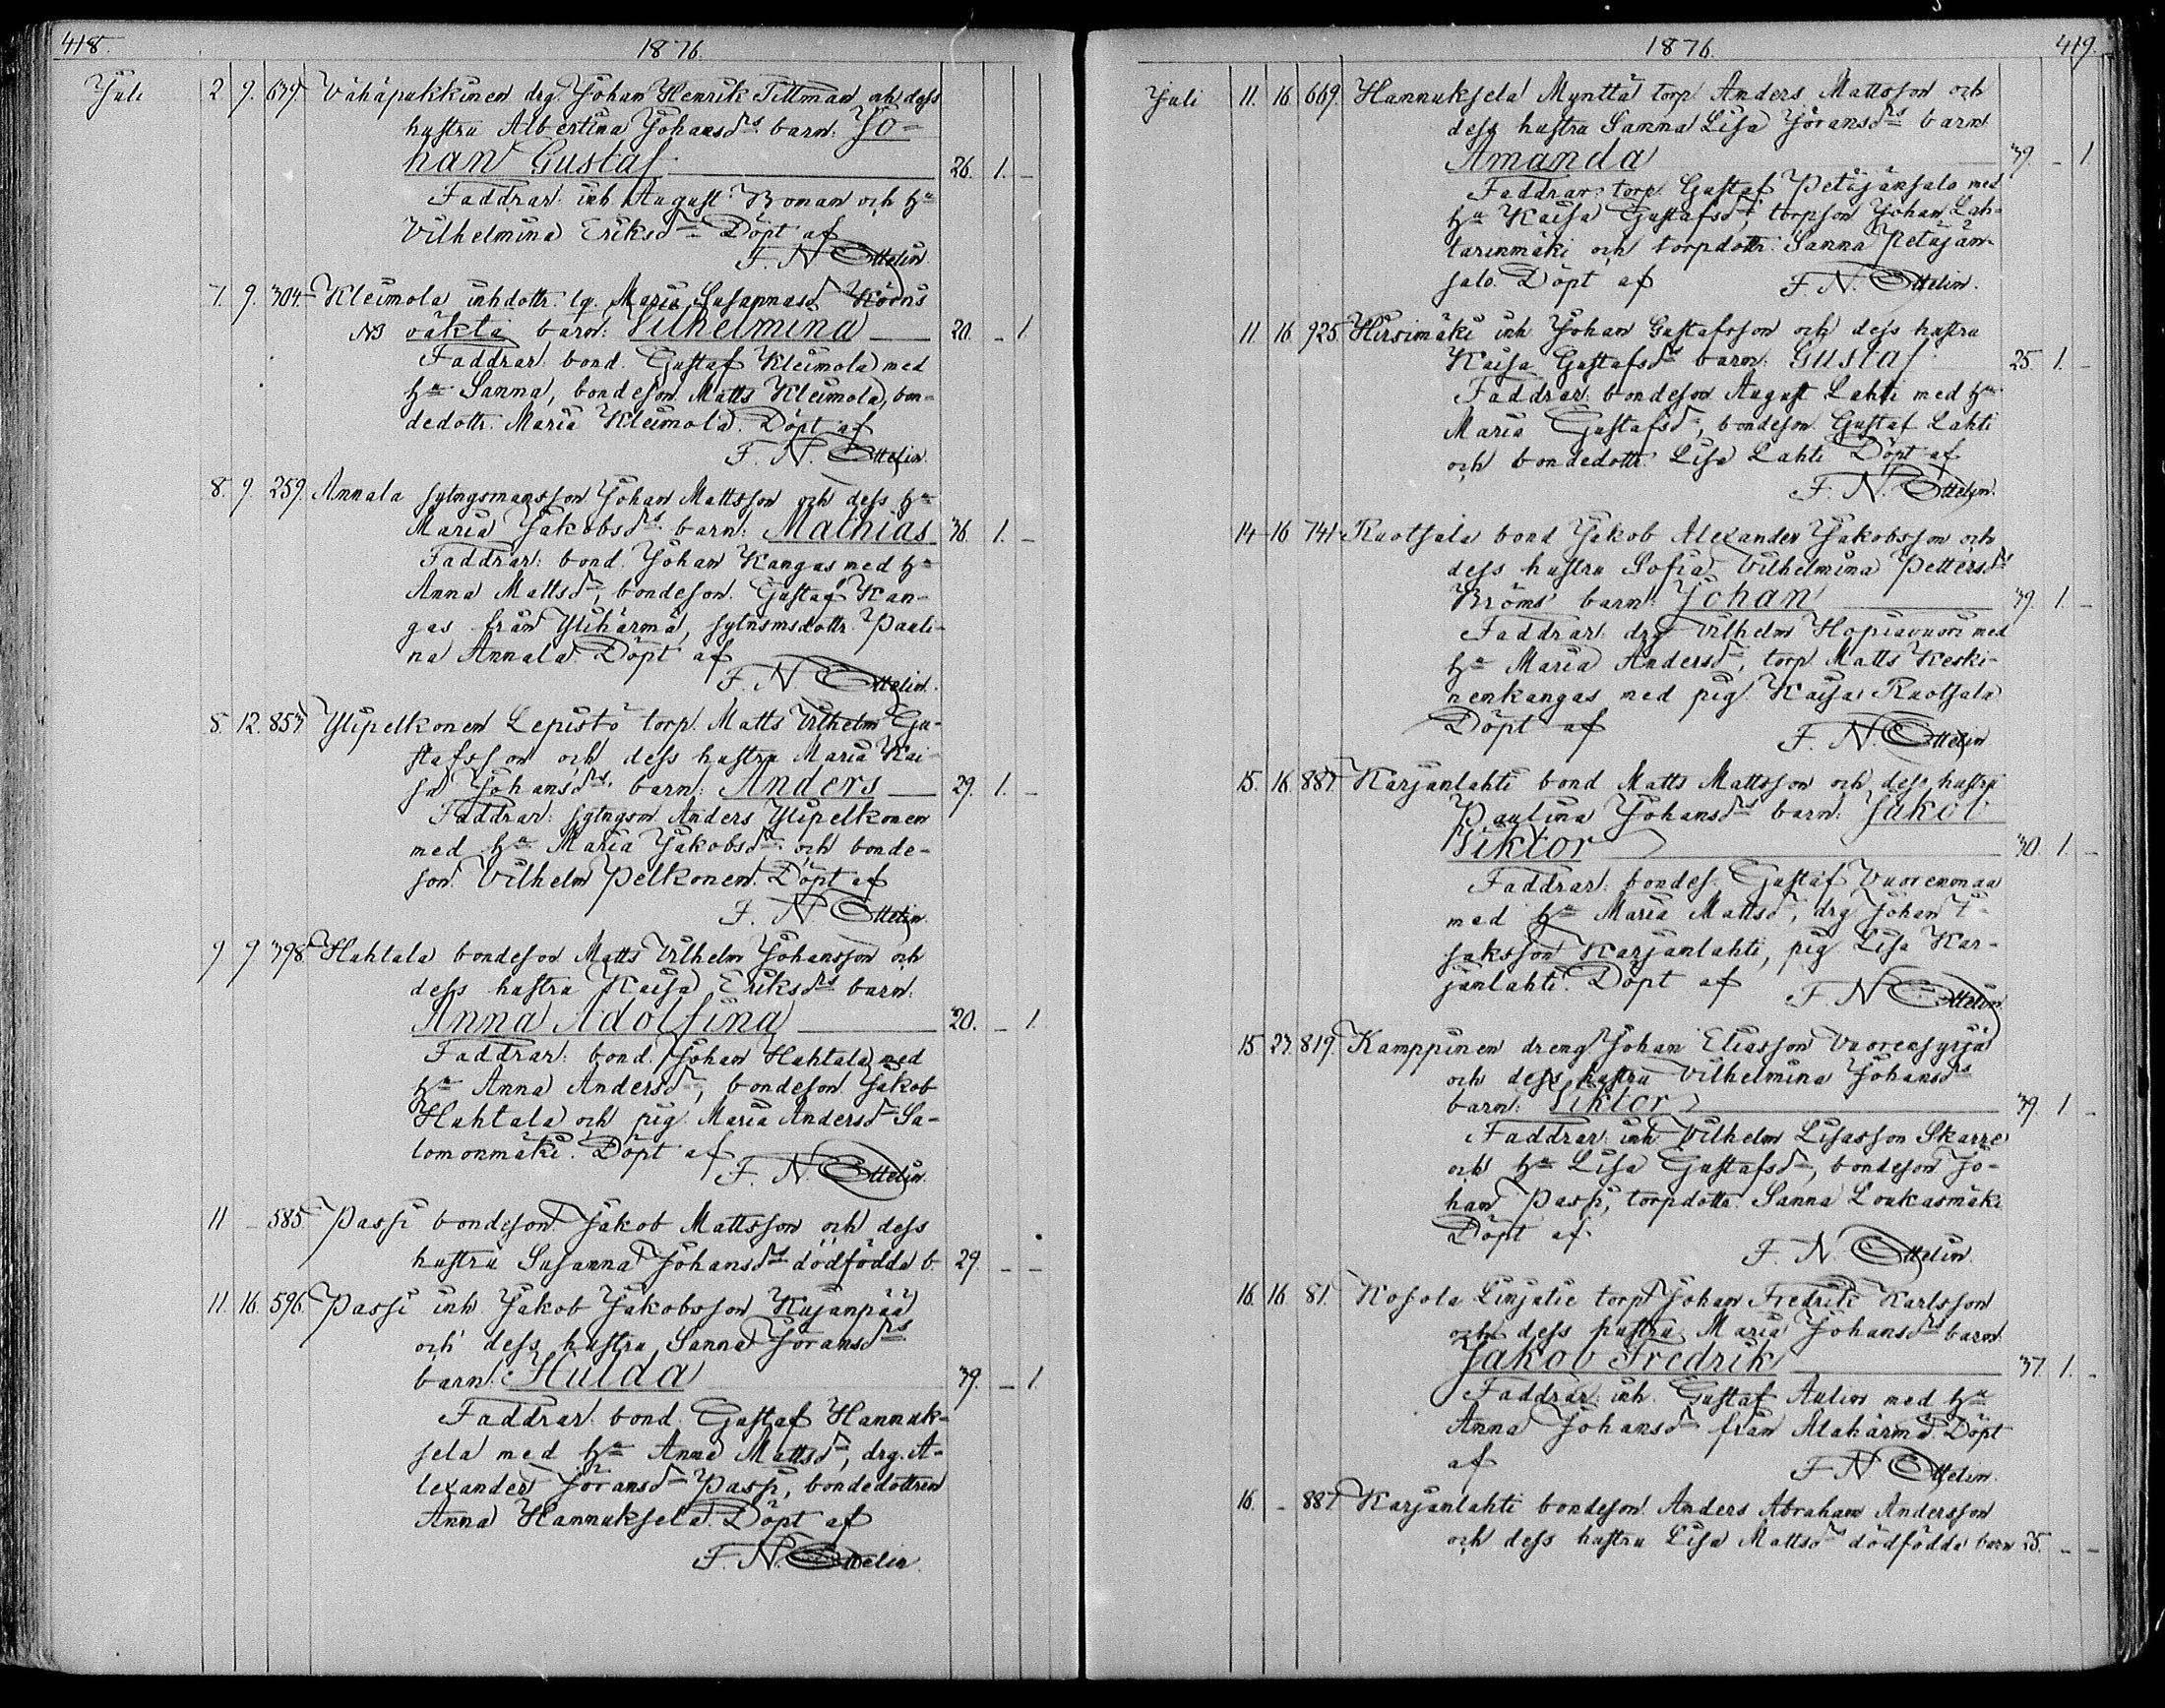 418. 1876.
Juli 2 9. 639. Vähäpukkinen drg. Johan Henrik Tittman och dess
hustru Albertina Johansdrs barn: Jo-
han Gustaf 26. 1. -
Faddrar: inh. August Boman och hu
Vilhelmina Eriksdr Döpt af
F. N. Ottelin.
7. 9. 304. Kleimola inhdottr. lg. Maria Susannasd. Körns
NB oäkta barn: Vilhelmina 20. - 1.
Faddrar: bond. Gustaf Kleimola med
hu Sanna, bondeson Matts Kleimola, bon-
dedottr. Maria Kleimola. Döpt af
F. N. Ottelin.
8. 9. 259. Annala sytngsmansson Johan Mattsson och dess hu
Maria Jakobsdrs barn: Mathias 36. 1. -
Faddrar: bond. Johan Kangas med hu
Anna Mattsdr, bondeson. Gustaf Kan-
gas från Ylihärmä, sytnsmsdottr. Pauli-
na Annala. Döpt af
F. N. Ottelin.
8. 12. 853. Ylipelkonen Lepistö torp. Matts Vilhelm Gu-
stafsson och dess hustru Maria Kai-
sa Johansdrs barn: Anders 29. 1. -
Faddrar: sytngsm Anders Ylipelkonen
med hu Maria Jakobsdr och bonde-
son. Vilhelm Pelkonen. Döpt af
F. N. Ottelin.
9 9 398. Huhtala bondeson Matts Vilhelm Johansson och
dess hustru Kaisa Eriksdrs barn:
Anna Adolfina 20. - 1.
Faddrar: bond. Johan Huhtala med
hu Anna Andersdr, bondeson. Jakob
Huhtala och pig. Maria Andersdr Sa-
lomonmäki. Döpt af
F. N. Ottelin.
11 - 585. Passi bondeson. Jakob Mattsson och dess
hustru Susanna Johansdrs dödfödda b. 29. - -
11. 16. 596. Passi inh. Jakob Jakobsson Kujanpää
och dess hustru Sanna Göransdrs
barn: Hulda 39. - 1.
Faddrar: bond. Gustaf Hannuk-
sela med hu Anna Mattsdr, drg. A-
lexander Göransdr Passi, bondedottren
Anna Hannuksela. Döpt af
F. N. Ottelin.
1876. 419.
Juli 11. 16 669. Hannuksela Mynttä torp. Anders Mattsson och
dess hustru Sanna Lisa Göransdrs barn
Amanda 39. - 1.
Faddrar: torp. Gustaf Petäjänsalo med
hu Kaisa Gustafsdr, torpson Johan Lah-
tarinmäki och torpdottr. Sanna Petäjän-
salo. Döpt af F. N. Ottelin.
11. 16 925. Hirsimäki inh Johan Gustafsson och dess hustru
Kaisa Gustafsdrs barn: Gustaf 25. 1. -
Faddrar: bondeson August Lahti med hu
Maria Gustafsdr, bondeson. Gustaf Lahti
och bondedottr. Lisa Lahti Döpt af
F. N. Ottelin.
14 16 741. Ruotsala bond Jakob Alexander Jakobsson och
dess hustru Sofia Vilhelmina Pettersdrs
Bröms barn: Johan 39. 1. -
Faddrar: drg Vilhelm Hopiavuori med
hu Maria Andersdr, torp. Matts Keski-
nenkangas med pig. Kaisa Ruotsala
Döpt af F. N. Ottelin
15. 16 887. Karjanlahti bond Matts Mattsson och dess hustru
Paulina Johansdrs barn: Jakob
Viktor 30. 1. -
Faddrar: bondes. Gustaf Vuorenmaa
med hu Maria Mattsdr, drg Johan I-
saksson Karjanlahti, pig Lisa Kar-
janlahti. Döpt af F. N. Ottelin
15. 23. 819. Kamppinen dreng Johan Eliasson Vuorensyrjä
och dess hustru Vilhelmina Johansdrs
barn: Viktor 39. 1 -
Faddrar: inh Vilhelm Lisasson Skarre
och hu Lisa Gustafsdr, bondeson Jo-
han Passi, torpdottr. Sanna Loukasmäki
Döpt af
F. N. Ottelin.
16. 16 81. Kosola Linjalie torp Johan Fredrik Karlsson
och dess hustru Maria Johansdrs barn
Jakob Fredrik 37. 1. -
Faddrar: inh. Gustaf Aulin med hu
Anna Johansdr från Alahärmä. Döpt
af F N Ottelin.
16. - 887 Karjanlahti bondeson. Anders Abraham Andersson
och dess hustru Lisa Mattsdrs dödfödda barn 25. - -